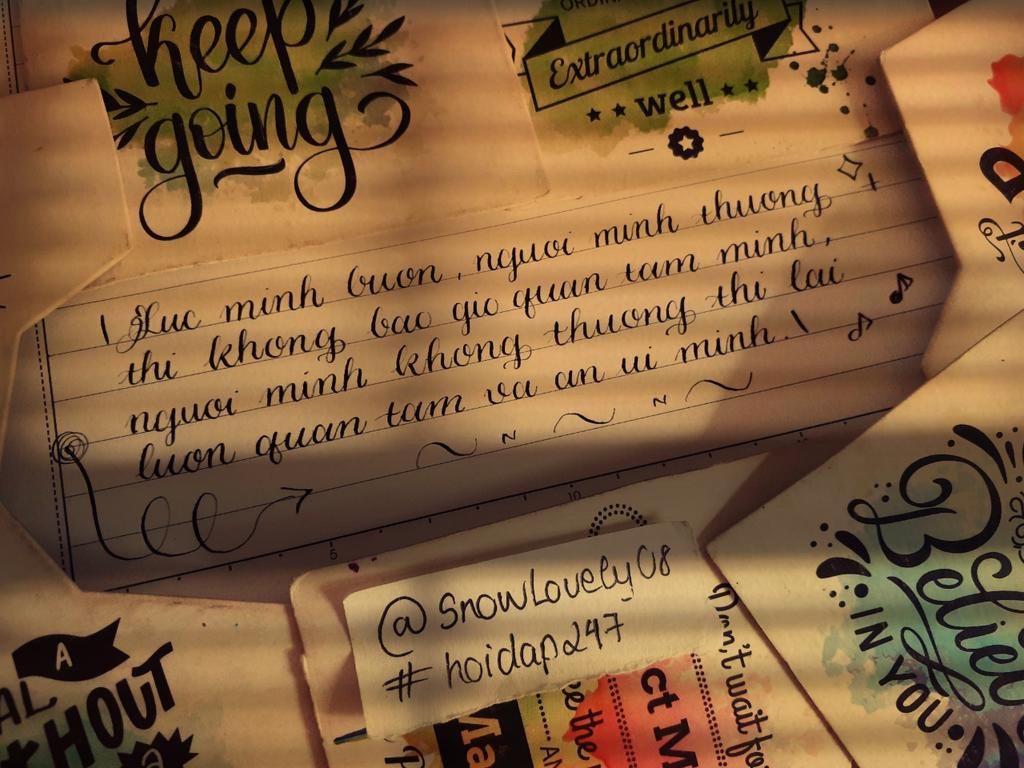 keep
going
Extraordinarily
well
Luc minh buon, nguoi minh thuong
thi khong bao gio quan tam minh,
nguoi minh khong thuong thi lai
luon quan tam va an ui minh.
5
10
@SnowLovely08
#hoidap247
A
HOUT
IN YOU
Don't wait fo
e the
ct M